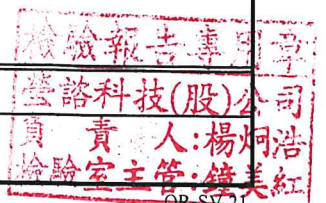 檢驗報告專用章
瑩諮科技(股)公司
負責人:楊炯浩
檢驗室主管:鐘美紅
QR-SV-21